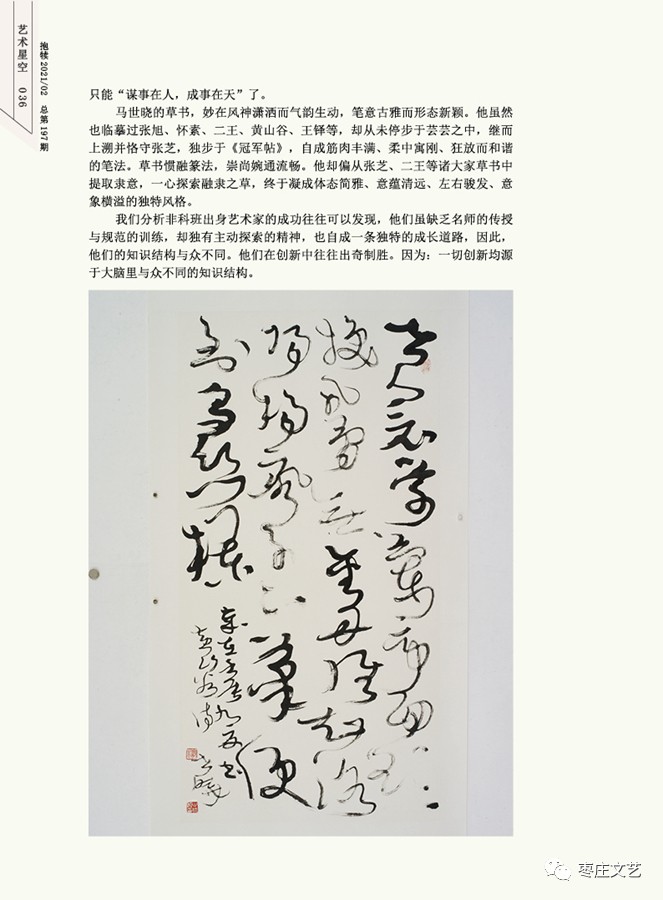 艺术星空 036
抱犊2021/02 总第197期
只能“谋事在人，成事在天”了。
马世晓的草书，妙在风神潇洒而气韵生动，笔意古雅而形态新颖。他虽然
也临摹过张旭、怀素、二王、黄山谷、王铎等，却从未停步于芸芸之中，继而
上溯并恪守张芝，独步于《冠军帖》，自成筋肉丰满、柔中寓刚、狂放而和谐
的笔法。草书惯融篆法，崇尚婉通流畅。他却偏从张芝、二王等诸大家草书中
提取隶意，一心探索融隶之草，终于凝成体态简雅、意蕴清远、左右骏发、意
象横溢的独特风格。
我们分析非科班出身艺术家的成功往往可以发现，他们虽缺乏名师的传授
与规范的训练，却独有主动探索的精神，也自成一条独特的成长道路，因此，
他们的知识结构与众不同。他们在创新中往往出奇制胜。因为：一切创新均源
于大脑里与众不同的知识结构。
世人学兰亭面欲
换凡骨无金丹谁知洛
阳杨风子下笔便
到乌丝栏
黄山谷诗 世晓
枣庄文艺